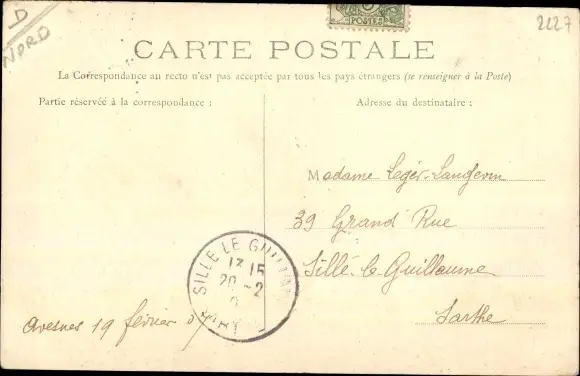 D
NORD
2227
5
POSTES
CARTE POSTALE
La Correspondance au recto n'est pas acceptée par tous les pays étrangers (se renseigner à la Poste)
Partie réservée à la correspondance :
Adresse du destinataire :
Madame Leger-Langevin
39 Grand Rue
Sillé-le-Guillaume
Sarthe
SILLE LE GUILLAUME
13 15
20 -2
SARTHE
Avesnes 19 février 07